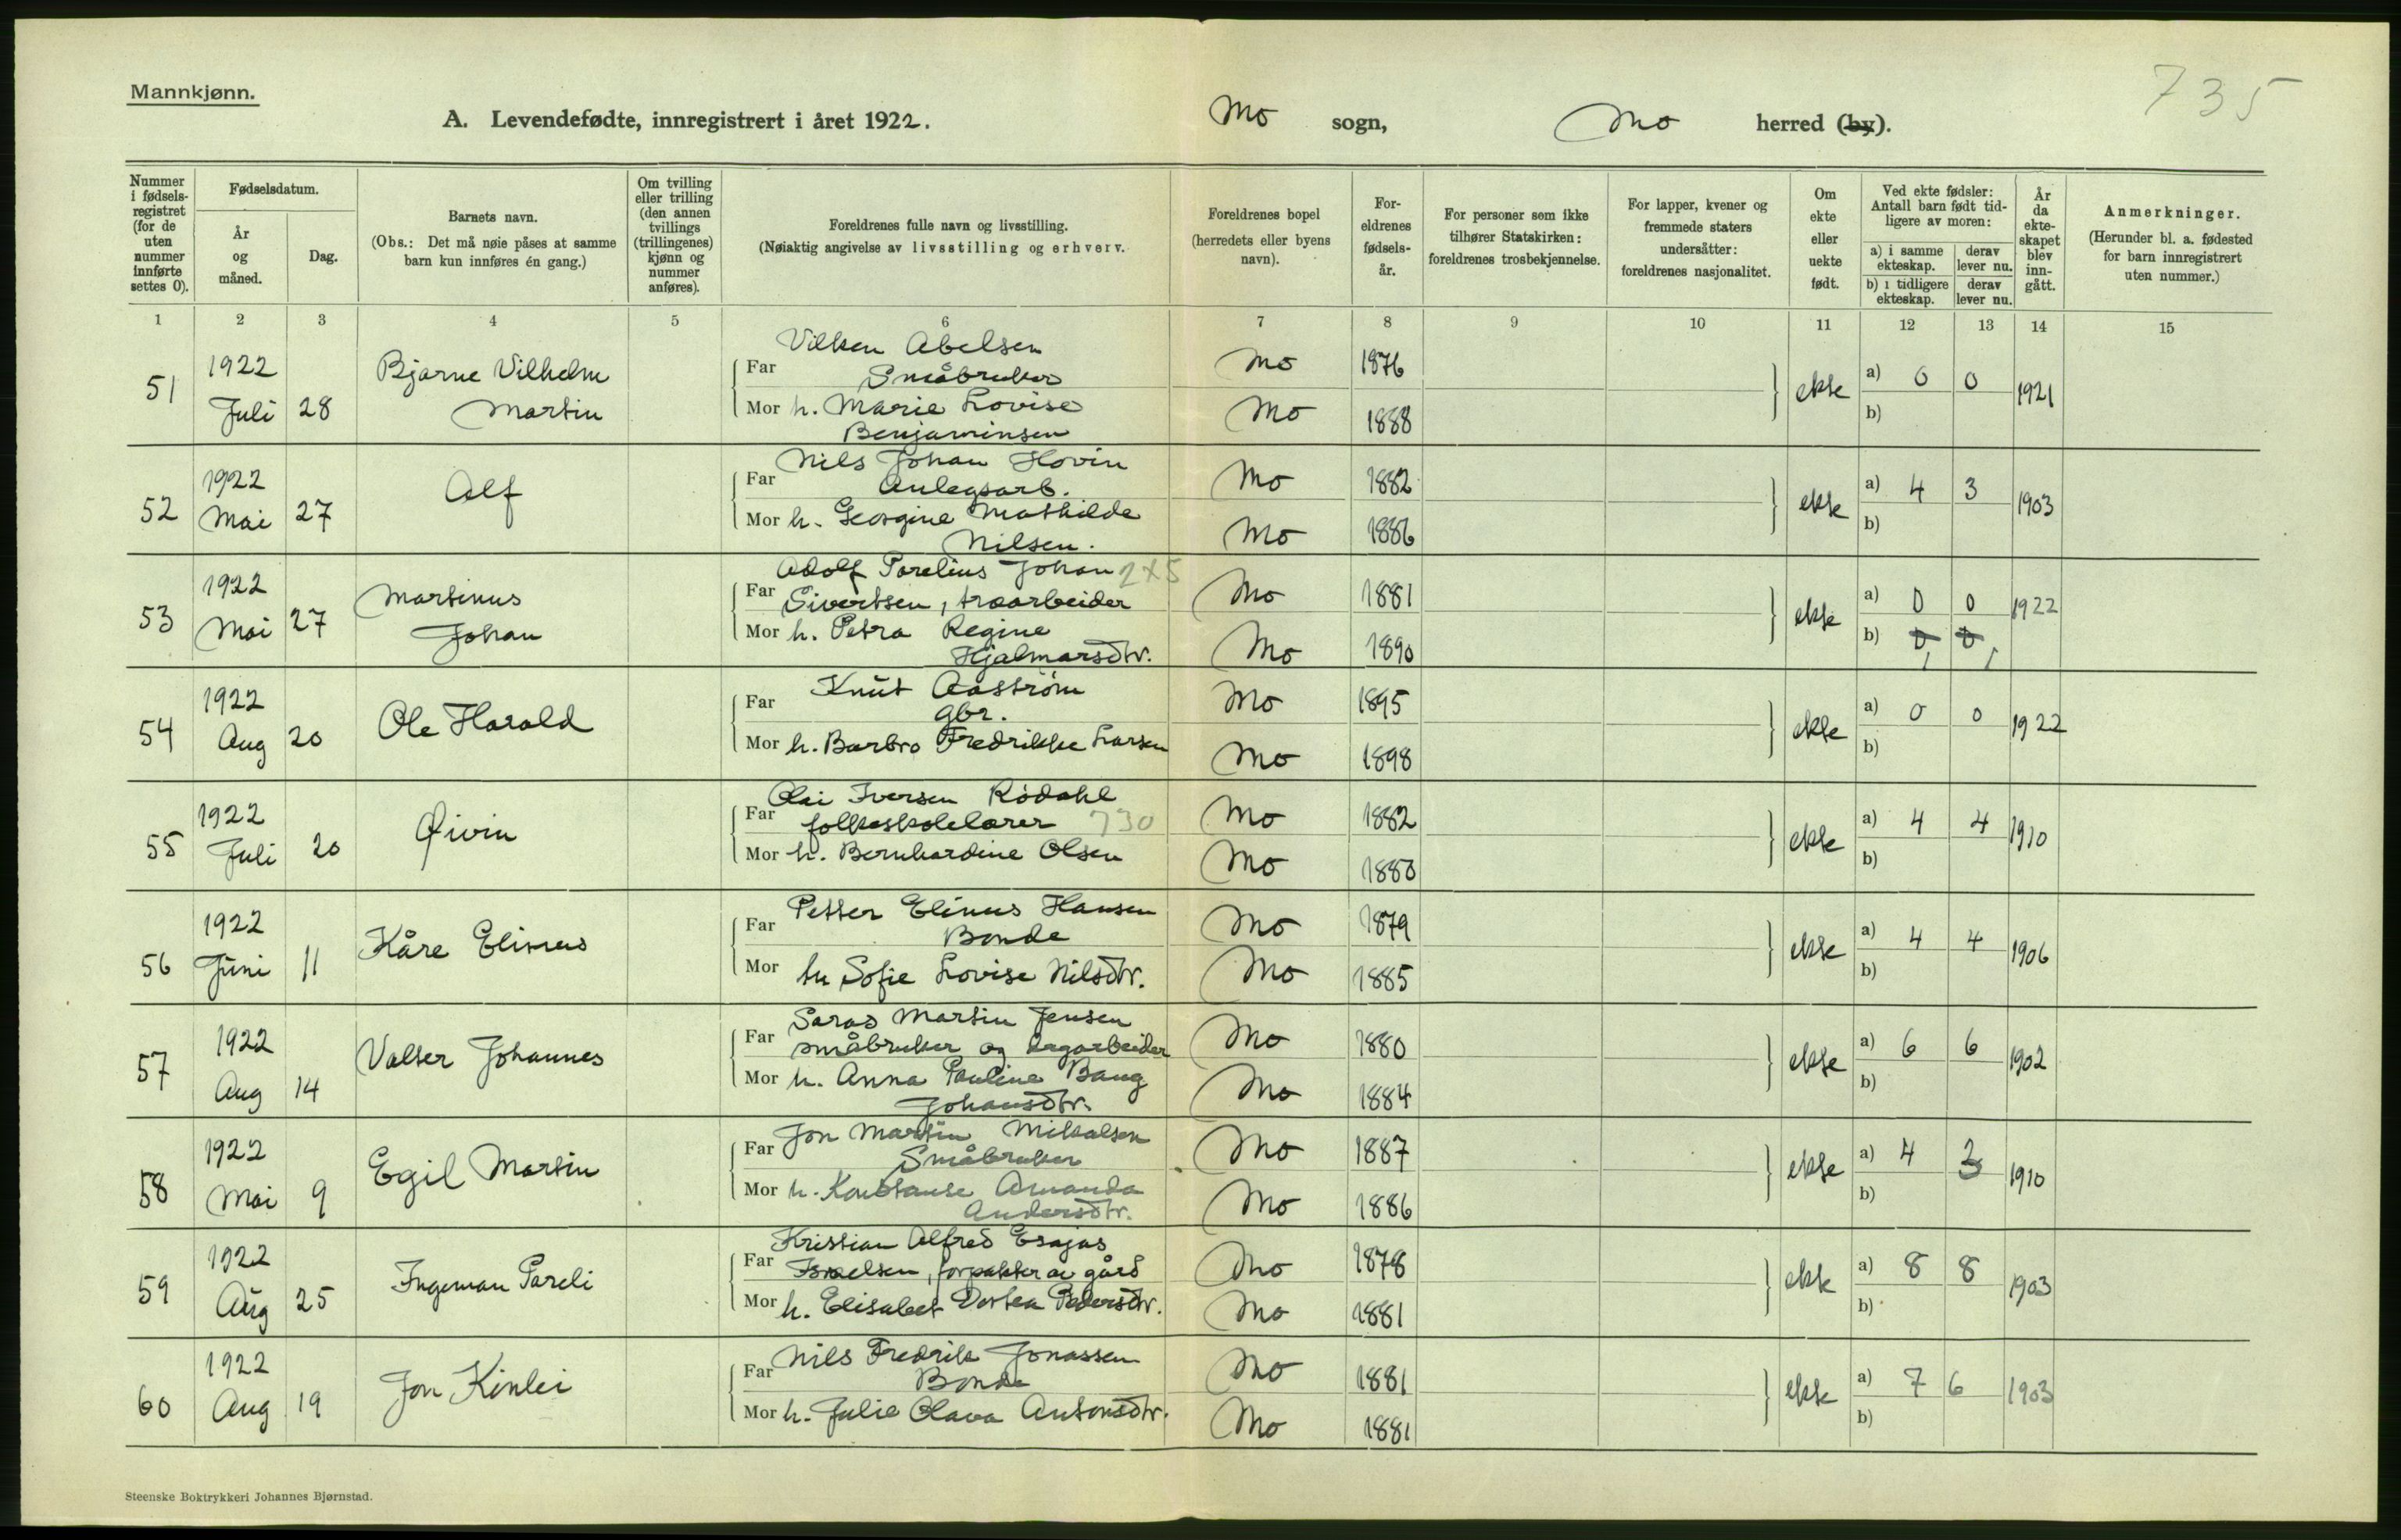 Mannkjønn.
735
A. Levendefødte, innregistrert i året 1922.
Mo sogn, Mo herred (by).
Nummer i fødsels-registret (for de uten nummer innførte settes 0).
Fødselsdatum.
År og måned.
Dag.
Barnets navn.
(Obs.: Det må nøie påses at samme barn kun innføres én gang.)
Om tvilling eller trilling (den annen tvillings (trillingenes) kjønn og nummer anføres).
Foreldrenes fulle navn og livsstilling.
(Nøiaktig angivelse av livsstilling og erhverv.
Foreldrenes bopel (herredets eller byens navn).
For-eldrenes fødsels-år.
For personer som ikke tilhører Statskirken: foreldrenes trosbekjennelse.
For lapper, kvener og fremmede staters undersåtter: foreldrenes nasjonalitet.
Om ekte eller uekte født.
Ved ekte fødsler: Antall barn født tid-ligere av moren:
a) i samme ekteskap.
derav lever nu.
b) i tidligere ekteskap.
derav lever nu.
År da ekte-skapet blev inn-gått.
Anmerkninger.
(Herunder bl. a. fødested for barn innregistrert uten nummer.)
1 2 3 4 5 6 7 8 9 10 11 12 13 14 15
51 1922 Juli 28 Bjarne Vilhelm Martin
Far Vilken Abelsen Småbruker Mo 1876
Mor h. Marie Lovise Benjaminsen Mo 1888
ekte a) 0 0 b) 1921
52 1922 Mai 27 Alf
Far Nils Johan Hovin Anlegsarb. Mo 1882
Mor h. Georgine Mathilde Nilsen. Mo 1886
ekte a) 4 3 b) 1903
53 1922 Mai 27 Martinus Johan
Far Adolf Parelius Johan 2x5 Sivertsen, traarbeider Mo 1881
Mor h. Petra Regine Hjalmarsdtr. Mo 1890
ekte a) 0 0 b) 0 0 1 1 1922
54 1922 Aug 20 Ole Harald
Far Knut Aaström gbr. Mo 1895
Mor h. Barbro Fredrikke Larsen Mo 1898
ekte a) 0 0 b) 1922
55 1922 Juli 20 Øivin
Far Olai Iversen Rödahl folkeskolelærer 730 Mo 1882
Mor h. Bernhardine Olsen Mo 1880
ekte a) 4 4 b) 1910
56 1922 Juni 11 Kåre Elinus
Far Petter Elinus Hansen Bonde Mo 1879
Mor hu Sofie Lovise Nilsdtr. Mo 1885
ekte a) 4 4 b) 1906
57 1922 Aug 14 Valter Johannes
Far Saras Martin Jensen småbruker og dagarbeider Mo 1880
Mor h. Anna Pauline Baug Johansdtr. Mo 1884
ekte a) 6 6 b) 1902
58 1922 Mai 9 Egil Martin
Far Jon Martin Mikalsen Småbruker Mo 1887
Mor h. Konstanse Amanda Andersdtr. Mo 1886
ekte a) 4 3 b) 1910
59 1922 Aug 25 Ingeman Pareli
Far Kristian Alfred Esajas Israelsen, forpakter av gård Mo 1878
Mor h. Elisabet Dortea Pedersdtr. Mo 1881
ekte a) 8 8 b) 1903
60 1922 Aug 19 Jon Kinlei
Far Nils Fredrik Jonassen Bonde Mo 1881
Mor h. Julie Olava Antonsdtr. Mo 1881
ekte a) 7 6 b) 1903
Steenske Boktrykkeri Johannes Bjørnstad.